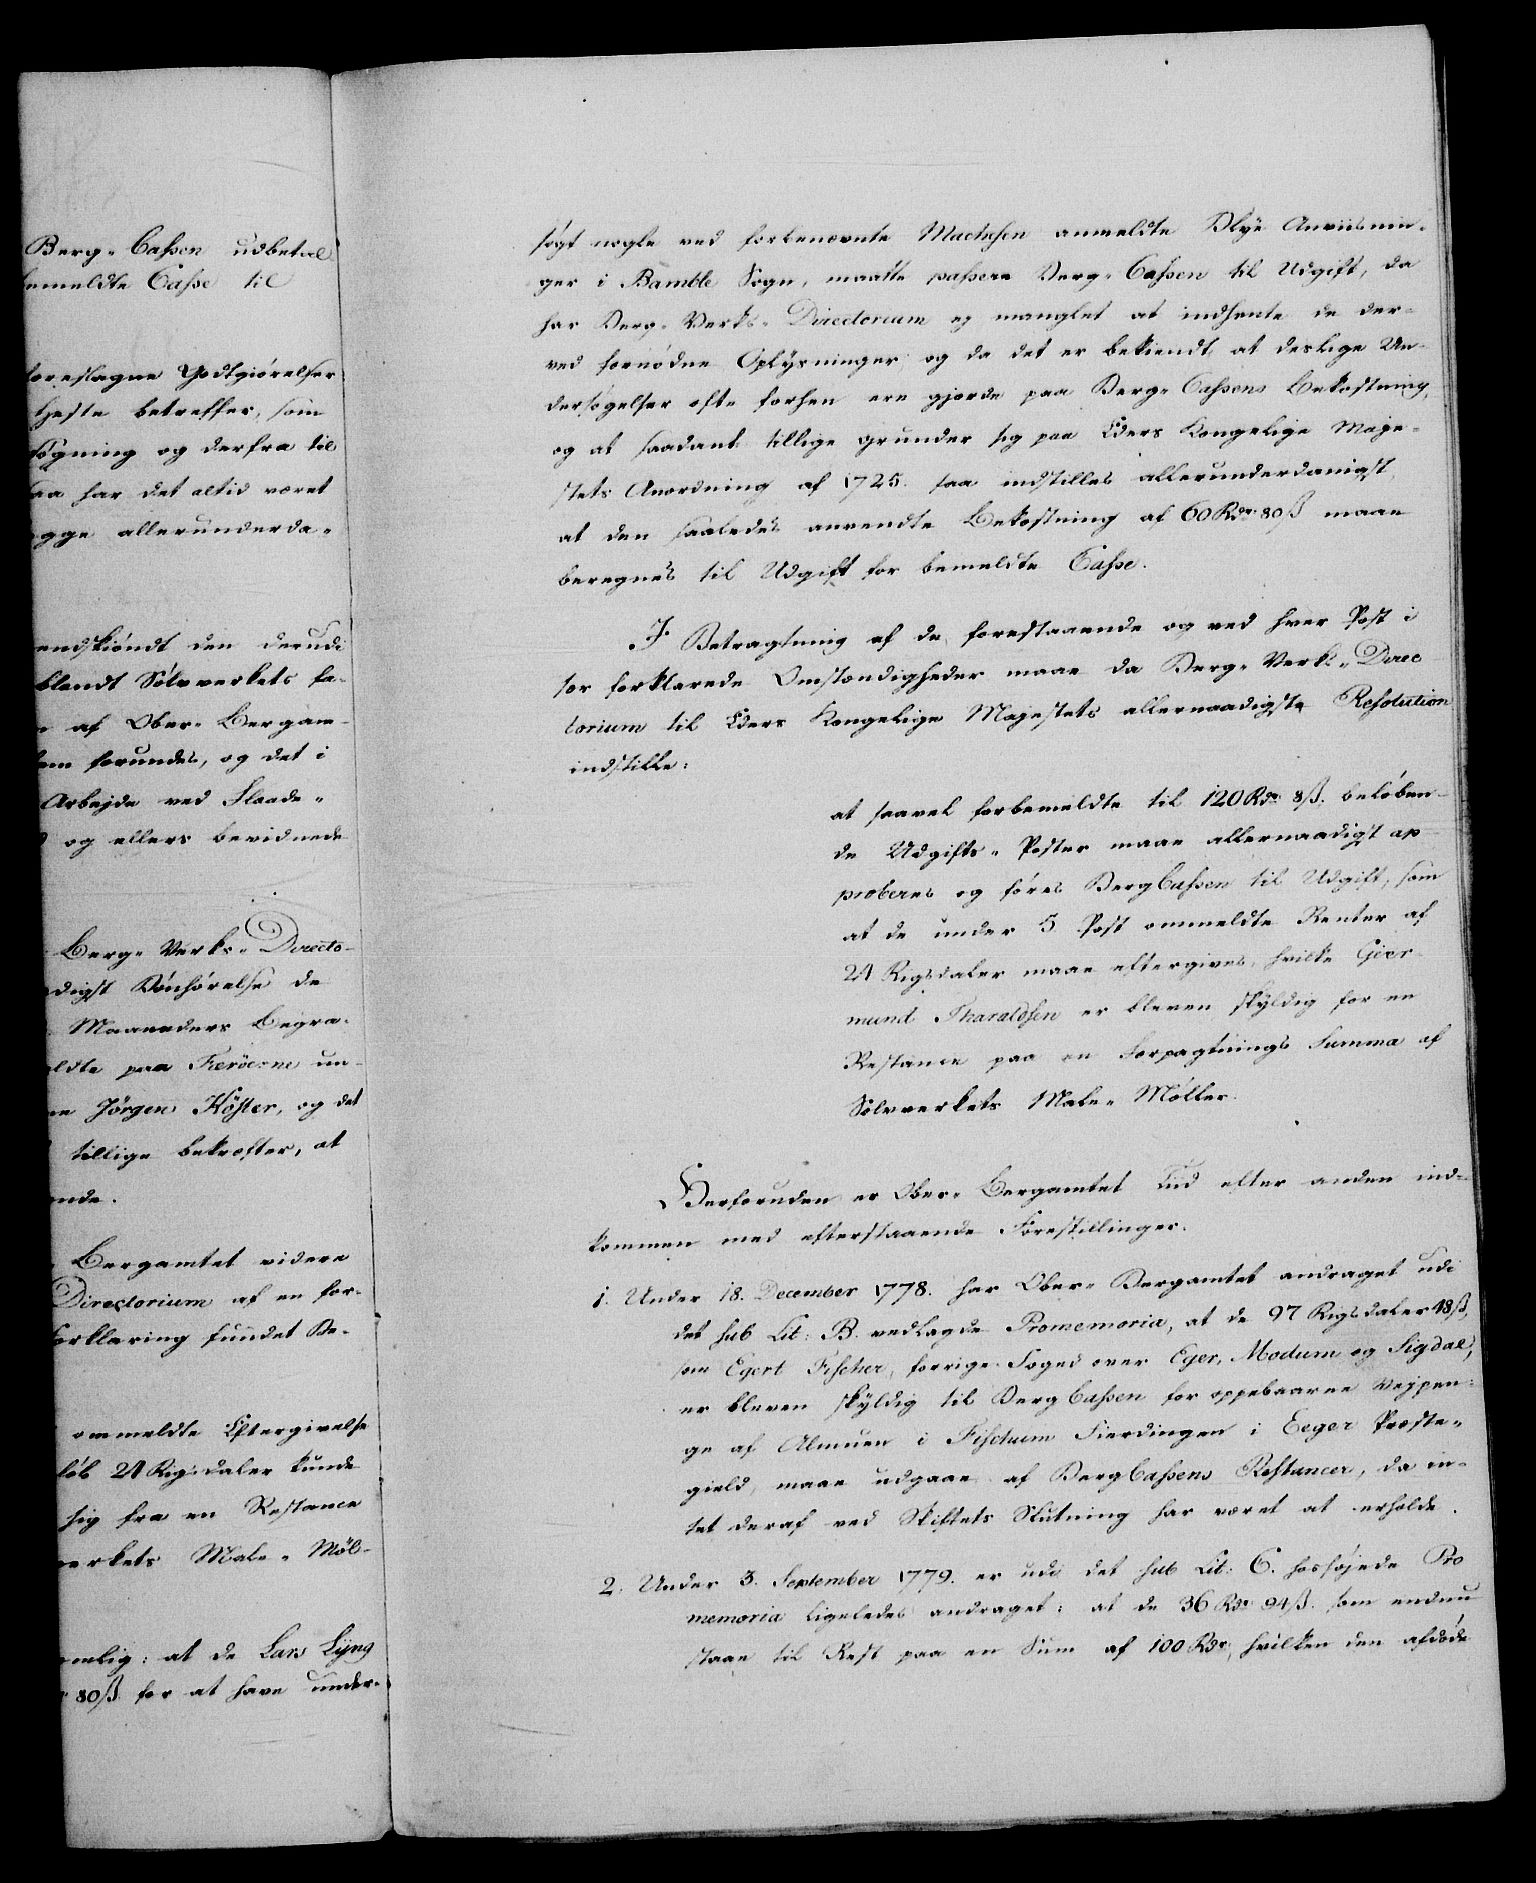 Berg- Cassen udbetal
bemeldte Casse til
foreslagne Godtgiørelser
hefte betreffer, som
søgning og derfra til
saa har det altid været
egge allerunderda-
endskiøndt den derudi
blandt Sølvverkets fa-
af Ober- Bergam-
forundes, og det i
Arbejde ved Flaade-
og ellers bevidnede
Berg- Verks- Directo-
digst Bønhørelse de
Maaneders Begra-
ldte paa Færöerne un-
Jörgen Höster, og det
tillige bekræfter, at
ende.
Bergamtet videre
Directorium af en for-
forklaring fundet Be-
ommeldte Eftergivelse
løb 24 Rigsdaler kunde
sig fra en Restance
verkets Male- Möl-
nemlig: at de Lars Lyng
80 ß for at have under-
søgt nogle ved forbenævnte Mathesen anmeldte Blye Anviisnin-
ger i Bamble Sogn, maatte passere Berg- Cassen til Udgift, da
har Berg- Verks- Directorium ej manglet at indhente de der-
ved fornødne Oplysninger og da det er bekiendt at deslige Un-
dersøgelser ofte forhen ere gjorde paa Berg- Cassens Bekostning,
og at saadant tillige grunder sig paa Eders Kongelige Maje-
stets Anordning af 1725. saa indstilles allerunderdanigst,
at den saaledes anvendte Bekostning af 60 Rdr 80 ß maae
beregnes til Udgift for bemeldte Casse.
I Betragtning af de forestaaende og ved hver Post i
sær forklarede Omstændigheder maae da Berg- Verks- Direc
torium til Eders Kongelige Majestets allernaadigste Resolution
indstille:
at saavel forbemeldte til 120 Rdr 8 ß. beløben-
de Udgifts- Poster maae allernaadigst ap-
proberes og føres BergCassen til Udgift, som
at de under 5 Post ommeldte Renter af
24 Rigsdaler maae eftergives, hvilke Gier-
mund Tharaldsen er bleven skyldig for en
Restance paa en Forpagtnings Summa af
Sølvverkets Male- Møller.
Herforuden er Ober- Bergamtet Tid efter anden ind-
kommen med efterstaaende Forestillinger.
1. Under 18. December 1778. har Ober- Bergamtet andraget udi
det sub Lit: B. vedlagde Promemoria, at de 97 Rigsdaler 48 ß,
som Egert Fischer, forrige Foged over Eger, Modum og Sigdal,
er bleven skyldig til BergCassen for oppebaarne Vejpen-
ge af Almuen i Fischum Fierdingen i Eeger Præste-
gield, maae udgaae af BergCassens Restancer, da in-
tet deraf ved Skiftets Slutning har været at erholde.
2. Under 3. September 1779. er udi det sub Lit: C. hosføjede Pro
memoria ligeledes andraget: at de 36 Rdr 94 ß. som endnu
staae til Rest paa en Sum af 100 Rdr, hvilken den afdøde